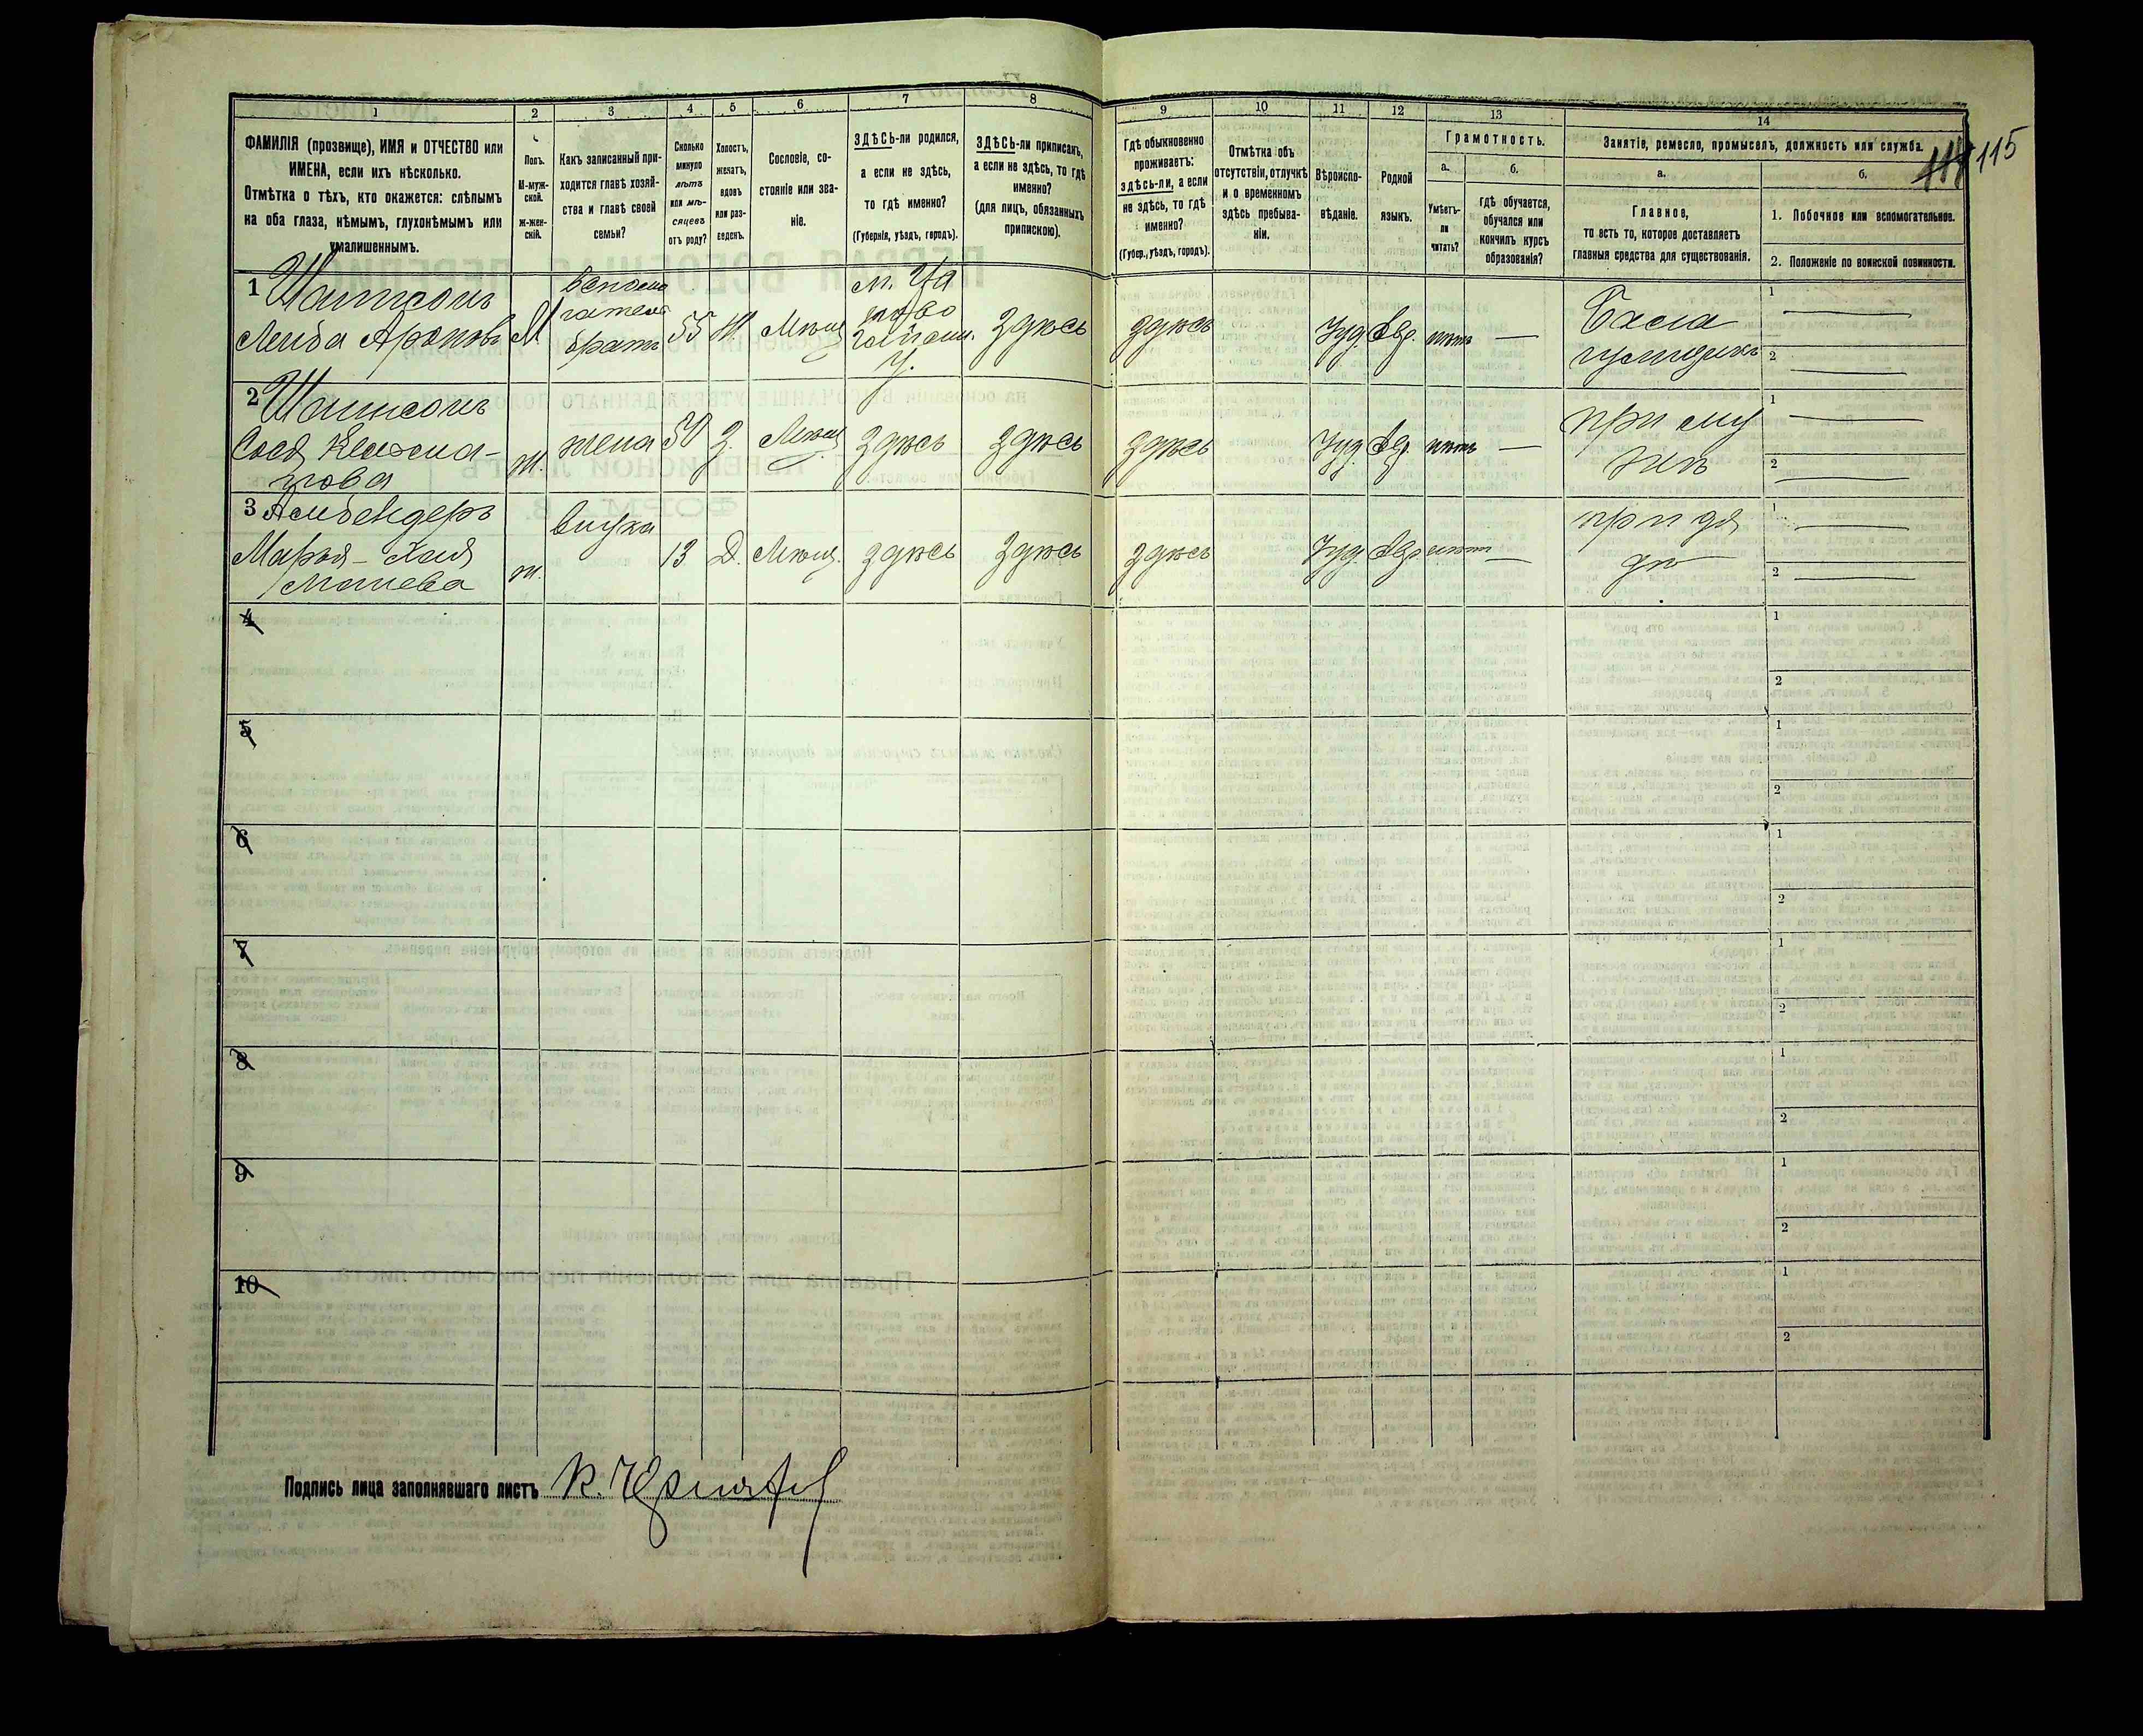 1 2 3 4 5 6 7 8 9 10 11 12 13 14
ФАМИЛІЯ (прозвище), ИМЯ и ОТЧЕСТВО или
ИМЕНА, если ихъ нѣсколько.
Отмѣтка о тѣхъ, кто окажется: слѣпымъ
на оба глаза, нѣмымъ, глухонѣмымъ или
умалишеннымъ.
Полъ.
М-муж-
ской.
Ж-жен-
скій.
Какъ записанный при-
ходится главѣ хозяй-
ства и главѣ своей
семьи?
Сколько
минуло
лѣтъ
или мѣ-
сяцевъ
отъ роду?
Холостъ,
женатъ,
вдовъ
или раз-
веденъ.
Сословіе, со-
стояніе или зва-
ніе.
ЗДѢСЬ-ли родился,
а если не здѣсь,
то гдѣ именно?
(Губернія, уѣздъ, городъ).
ЗДѢСЬ-ли приписанъ,
а если не здѣсь, то гдѣ
именно?
(для лицъ, обязанныхъ
припискою).
Гдѣ обыкновенно
проживаетъ:
здѣсь-ли, а если
не здѣсь, то гдѣ
именно?
(Губер., уѣздъ, городъ).
Отмѣтка объ
отсутствіи, отлучкѣ
и о временномъ
здѣсь пребыва-
ніи.
Вѣроиспо-
вѣданіе.
Родной
языкъ.
Грамотность.
а.
Умѣетъ-
ли
читать?
б.
гдѣ обучается,
обучался или
кончилъ курсъ
образованія?
Занятіе, ремесло, промыселъ, должность или служба.
115
а.
Главное,
то есть то, которое доставляетъ
главныя средства для существованія.
б.
1. Побочное или вспомогательное.
2. Положеніе по воинской повинности.
1
Лейба Ароновъ
М
братъ
55
Ж.
Мѣщ
здѣсь
здѣсь
Іуд.
Евр.
нѣтъ —
1 —
2 —
2
ж.
жена
50
З.
Мѣщ
здѣсь
здѣсь
здѣсь
Іуд.
Евр.
нѣтъ —
при му
жѣ
1 —
2 —
3
Марья-Хая
ж.
внука
13
Д.
Мѣщ.
здѣсь
здѣсь
здѣсь
Іуд.
Евр.
нѣтъ —
при дѣ
дѣ
1 —
2 —
4
1
2
5
1
2
6
1
2
7
1
2
8
1
2
9
1
2
10
1
2
Подпись лица заполнявшаго листъ